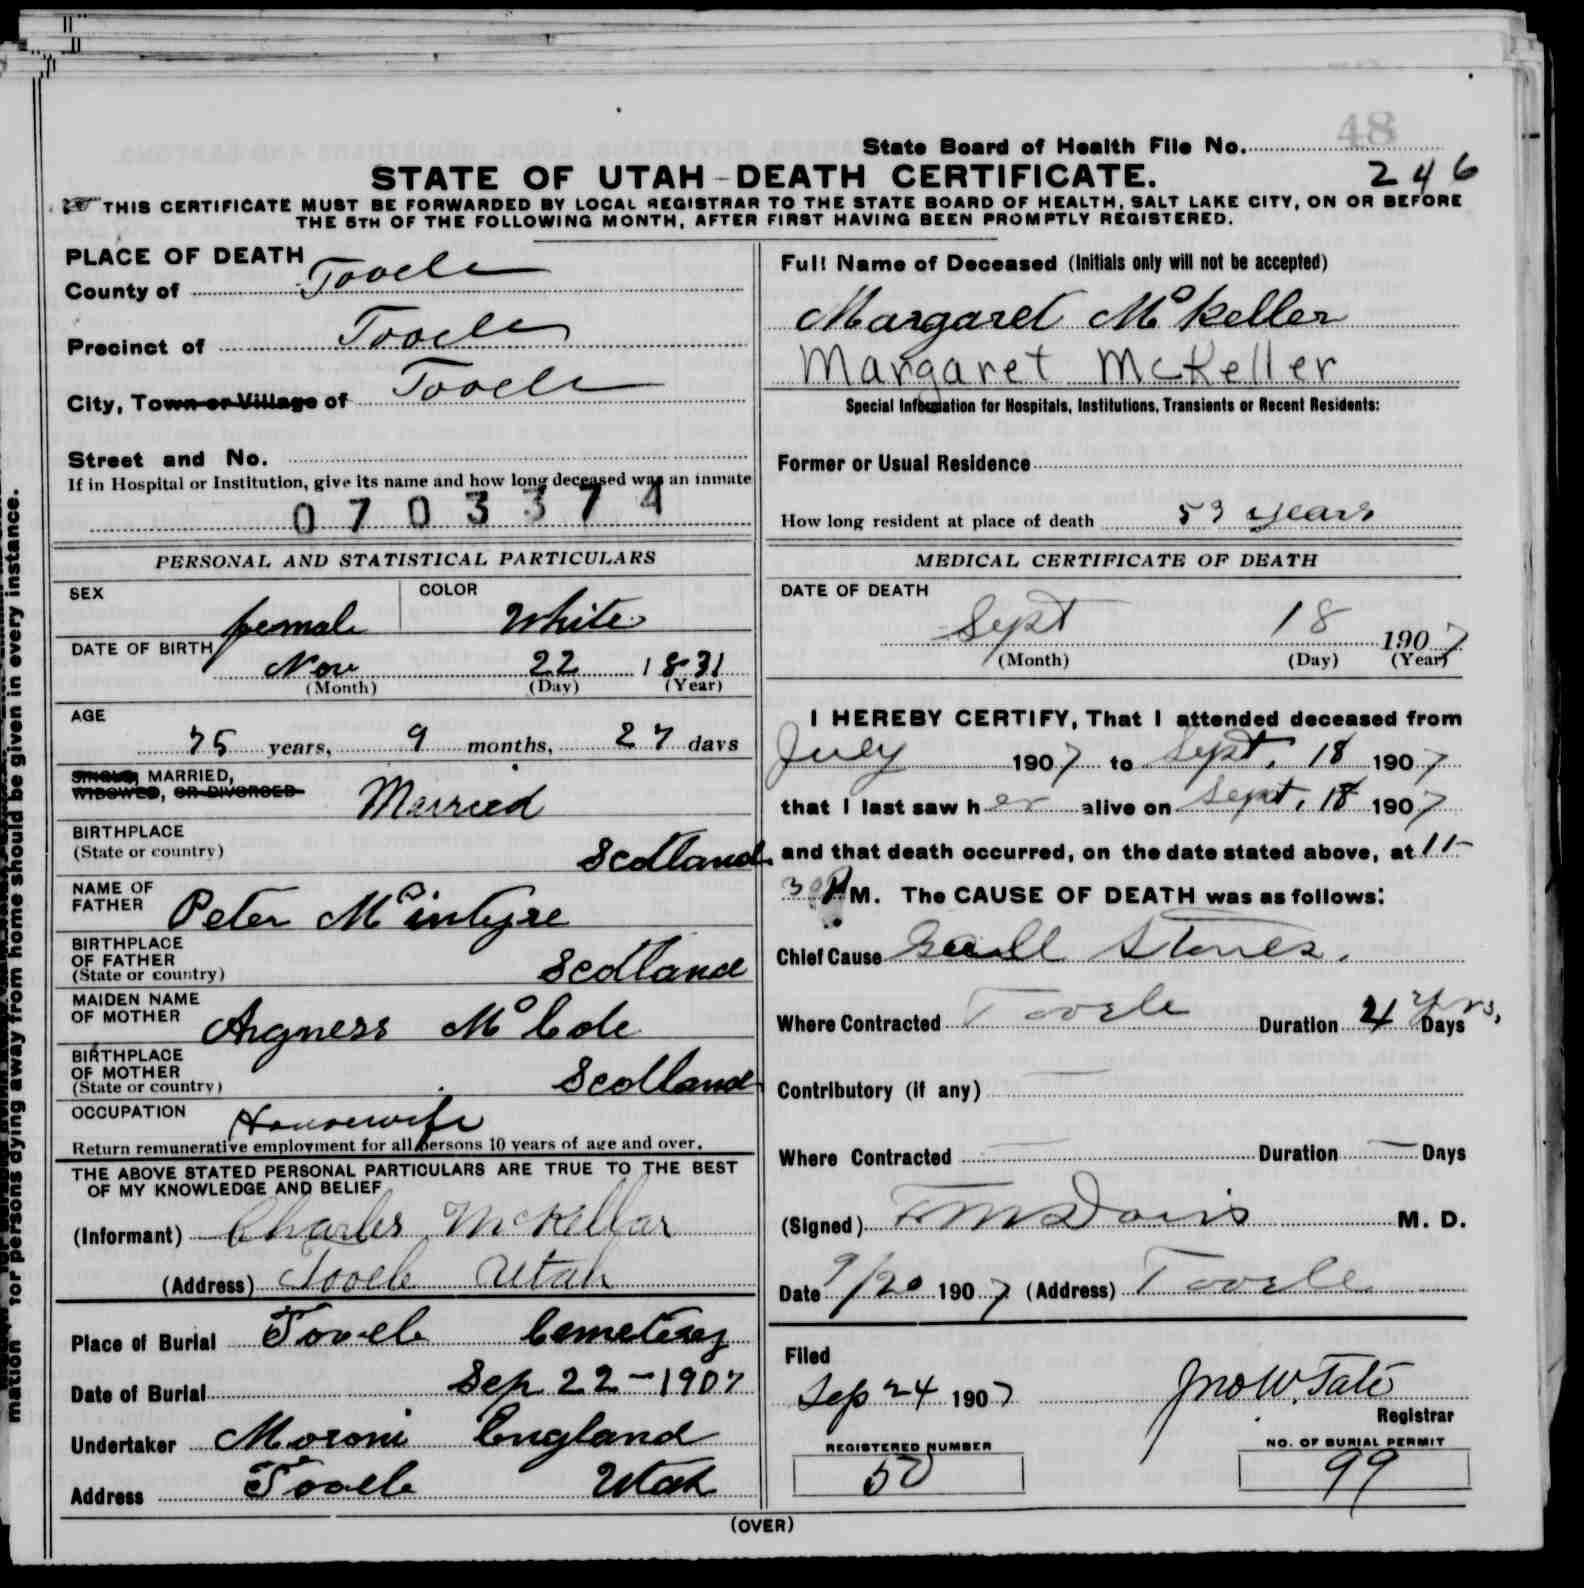 48
State Board of Health File No.
246
STATE OF UTAH-DEATH CERTIFICATE.
THIS CERTIFICATE MUST BE FORWARDED BY LOCAL REGISTRAR TO THE STATE BOARD OF HEALTH, SALT LAKE CITY, ON OR BEFORE
THE 5TH OF THE FOLLOWING MONTH, AFTER FIRST HAVING BEEN PROMPTLY REGISTERED.
PLACE OF DEATH
County of Tooele
Precinct of Tooele
City, Town or Village of Tooele
Street and No.
If in Hospital or Institution, give its name and how long deceased was an inmate
0703374
PERSONAL AND STATISTICAL PARTICULARS
SEX female
COLOR White
DATE OF BIRTH
Nov 22 1831
(Month) (Day) (Year)
AGE
75 years, 9 months, 27 days
SINGLE, MARRIED,
WIDOWED, OR DIVORCED Married
BIRTHPLACE
(State or country) Scotland
NAME OF
FATHER Peter McIntyre
BIRTHPLACE
OF FATHER
(State or country) Scotland
MAIDEN NAME
OF MOTHER Angness McCole
BIRTHPLACE
OF MOTHER
(State or country) Scotland
OCCUPATION Housewife
Return remunerative employment for all persons 10 years of age and over.
THE ABOVE STATED PERSONAL PARTICULARS ARE TRUE TO THE BEST
OF MY KNOWLEDGE AND BELIEF
(Informant) Charles McKellar
(Address) Tooele Utah
Place of Burial Tooele Cemetery
Date of Burial Sep 22-1907
Undertaker Moroni England
Address Tooele Utah
Full Name of Deceased (Initials only will not be accepted)
Margaret McKeller
Margaret McKeller
Special Information for Hospitals, Institutions, Transients or Recent Residents:
Former or Usual Residence
How long resident at place of death 53 years
MEDICAL CERTIFICATE OF DEATH
DATE OF DEATH
Sept 18 1907
(Month) (Day) (Year)
I HEREBY CERTIFY, That I attended deceased from
July 1907 to Sept. 18 1907
that I last saw her alive on Sept. 18 1907
and that death occurred, on the date stated above, at 11-
30 P M. The CAUSE OF DEATH was as follows:
Chief Cause Gall Stones.
Where Contracted Tooele Duration 4 Yrs. Days
Contributory (if any) —
Where Contracted — Duration — Days
(Signed) F M Davis M. D.
Date 9/20 1907 (Address) Tooele
Filed
Sep 24 1907 Jno W. Tate
Registrar
REGISTERED NUMBER
50
NO. OF BURIAL PERMIT
99
(OVER)
mation for persons dying away from home should be given in every instance.